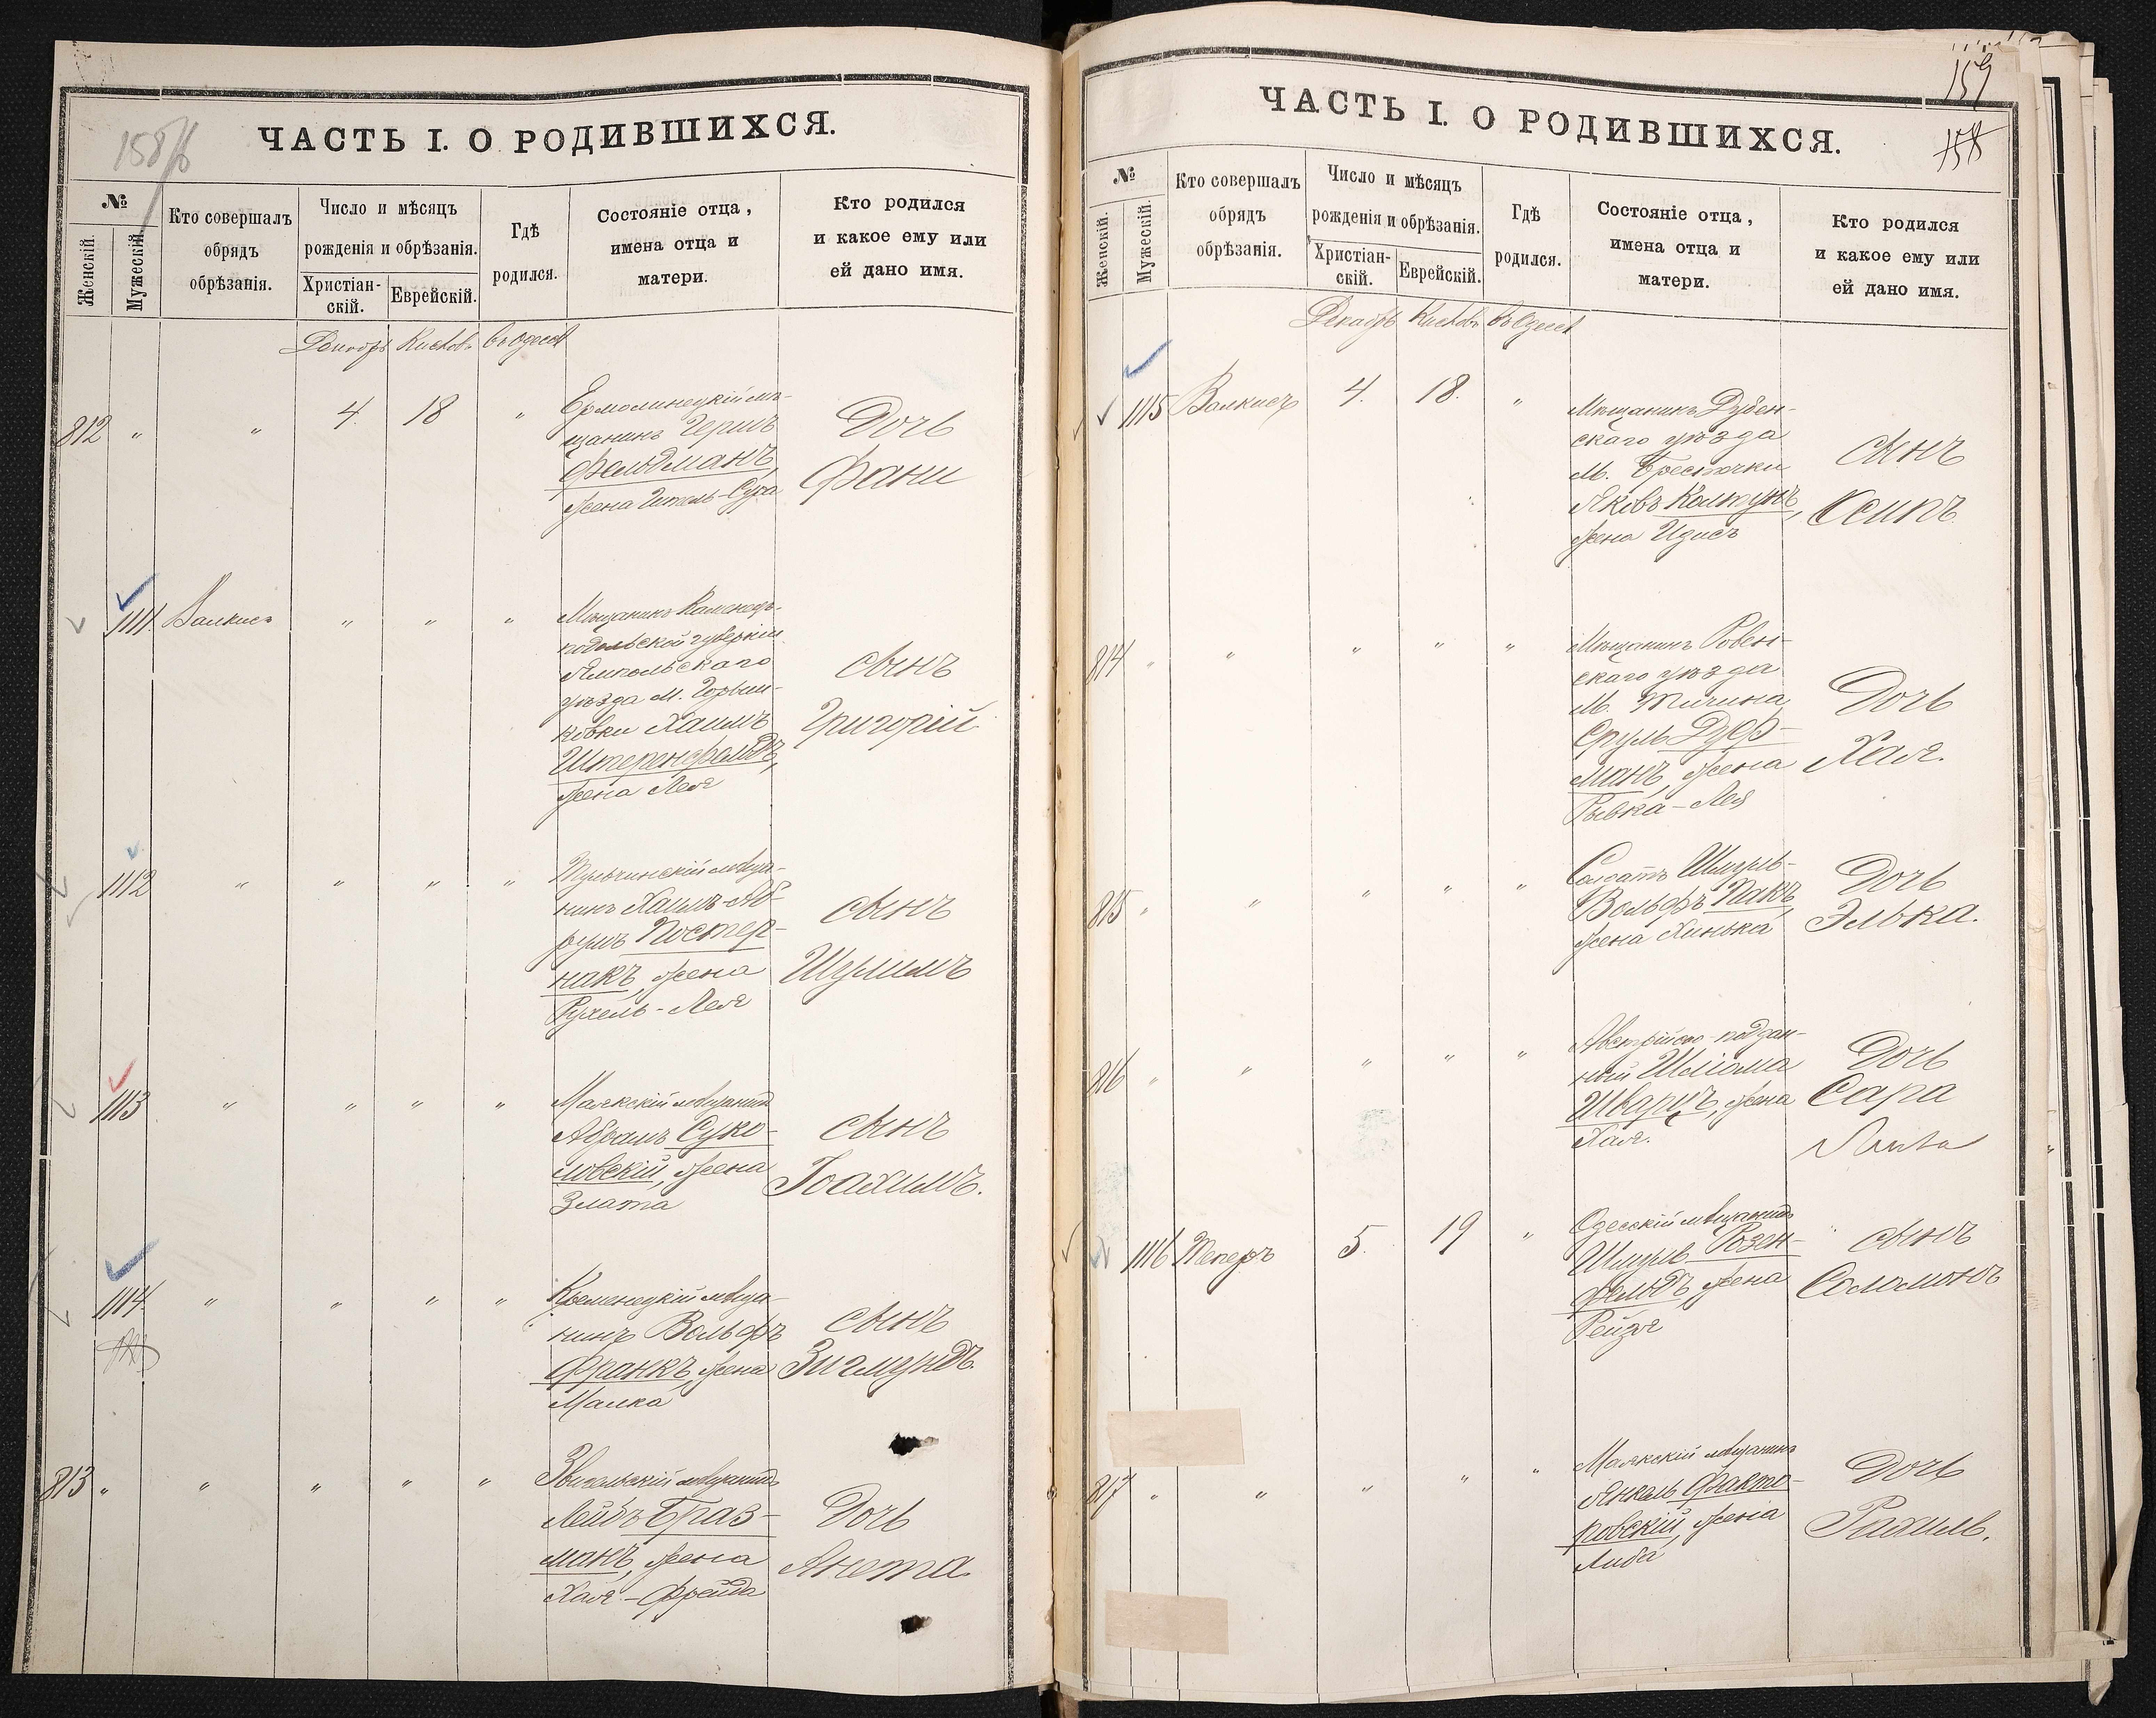 158 об
ЧАСТЬ I. О РОДИВШИХСЯ.
№
Женскій.
Мужескій.
Кто совершалъ
обрядъ
обрѣзанія.
Число и мѣсяцъ
рожденія и обрѣзанія.
Христіан-
скій.
Еврейскій.
Гдѣ
родился.
Состояніе отца,
имена отца и
матери.
Кто родился
и какое ему или
ей дано имя.
Декабрь Кислевъ въ Одессѣ
812 " " 4. 18 "
Ермолинецкій мѣ-
щанинъ Гершъ
Фельдманъ,
жена Гитель-Сура
Дочь
Фани
1111. Валкисъ " " "
Мѣщанинъ Каменецъ-
подольской губерніи
Ямпольскаго
уѣзда м.
ковки Хаимъ
Штеренфельдъ,
жена Лея
сынъ
Григорій
1112 " " " "
Тульчинскій мѣща-
нинъ Хаимъ-Аб-
румъ Постер-
накъ, жена
Рухель-Лея
сынъ
Шулимъ
1113 " " " "
Маякскій мѣщанинъ
Абрамъ Суко-
ловскій, жена
Злата
сынъ
Іоахимъ.
1114. " " " "
Кременецкій мѣща-
нинъ Вольфъ
Франкъ, жена
Малка
сынъ
Зигмундъ.
813 " " " " "
Звягельскій мѣщанинъ
Лейбъ Браз-
манъ, жена
Хая-Фрейда
Дочь
Анета
159
158
ЧАСТЬ I. О РОДИВШИХСЯ.
№
Женскій.
Мужескій.
Кто совершалъ
обрядъ
обрѣзанія.
Число и мѣсяцъ
рожденія и обрѣзанія.
Христіан-
скій.
Еврейскій.
Гдѣ
родился.
Состояніе отца,
имена отца и
матери.
Кто родился
и какое ему или
ей дано имя.
Декабрь Кислевъ въ Одессѣ
1115 Валкисъ 4. 18. "
Мѣщанинъ Дубен-
скаго уѣзда
м. Берестечки
Яковъ Колтунъ,
жена Идисъ
сынъ
Осипъ
814 " " " " "
Мѣщанинъ Ровен-
скаго уѣзда
м. Тучина
Сруль Дуер-
манъ, жена
Рывка-Лея
Дочь
Хая.
815 " " " " "
Солдатъ Шмуль-
Вольфъ Пакъ,
жена Хинька
Дочь
Элька.
816 " " " " "
Австрійско-поддан-
ный Шліома
Шварцъ, жена
Хая.
Дочь
Сара
1116 Теперъ 5. 19 "
Одесскій мѣщанинъ
Шмуль Розен-
фельдъ, жена
Рейзя
сынъ
Соломонъ
817 " " " " "
Маякскій мѣщанинъ
Янкель Факто-
ровскій, жена
Либа
Дочь
Рахиль.